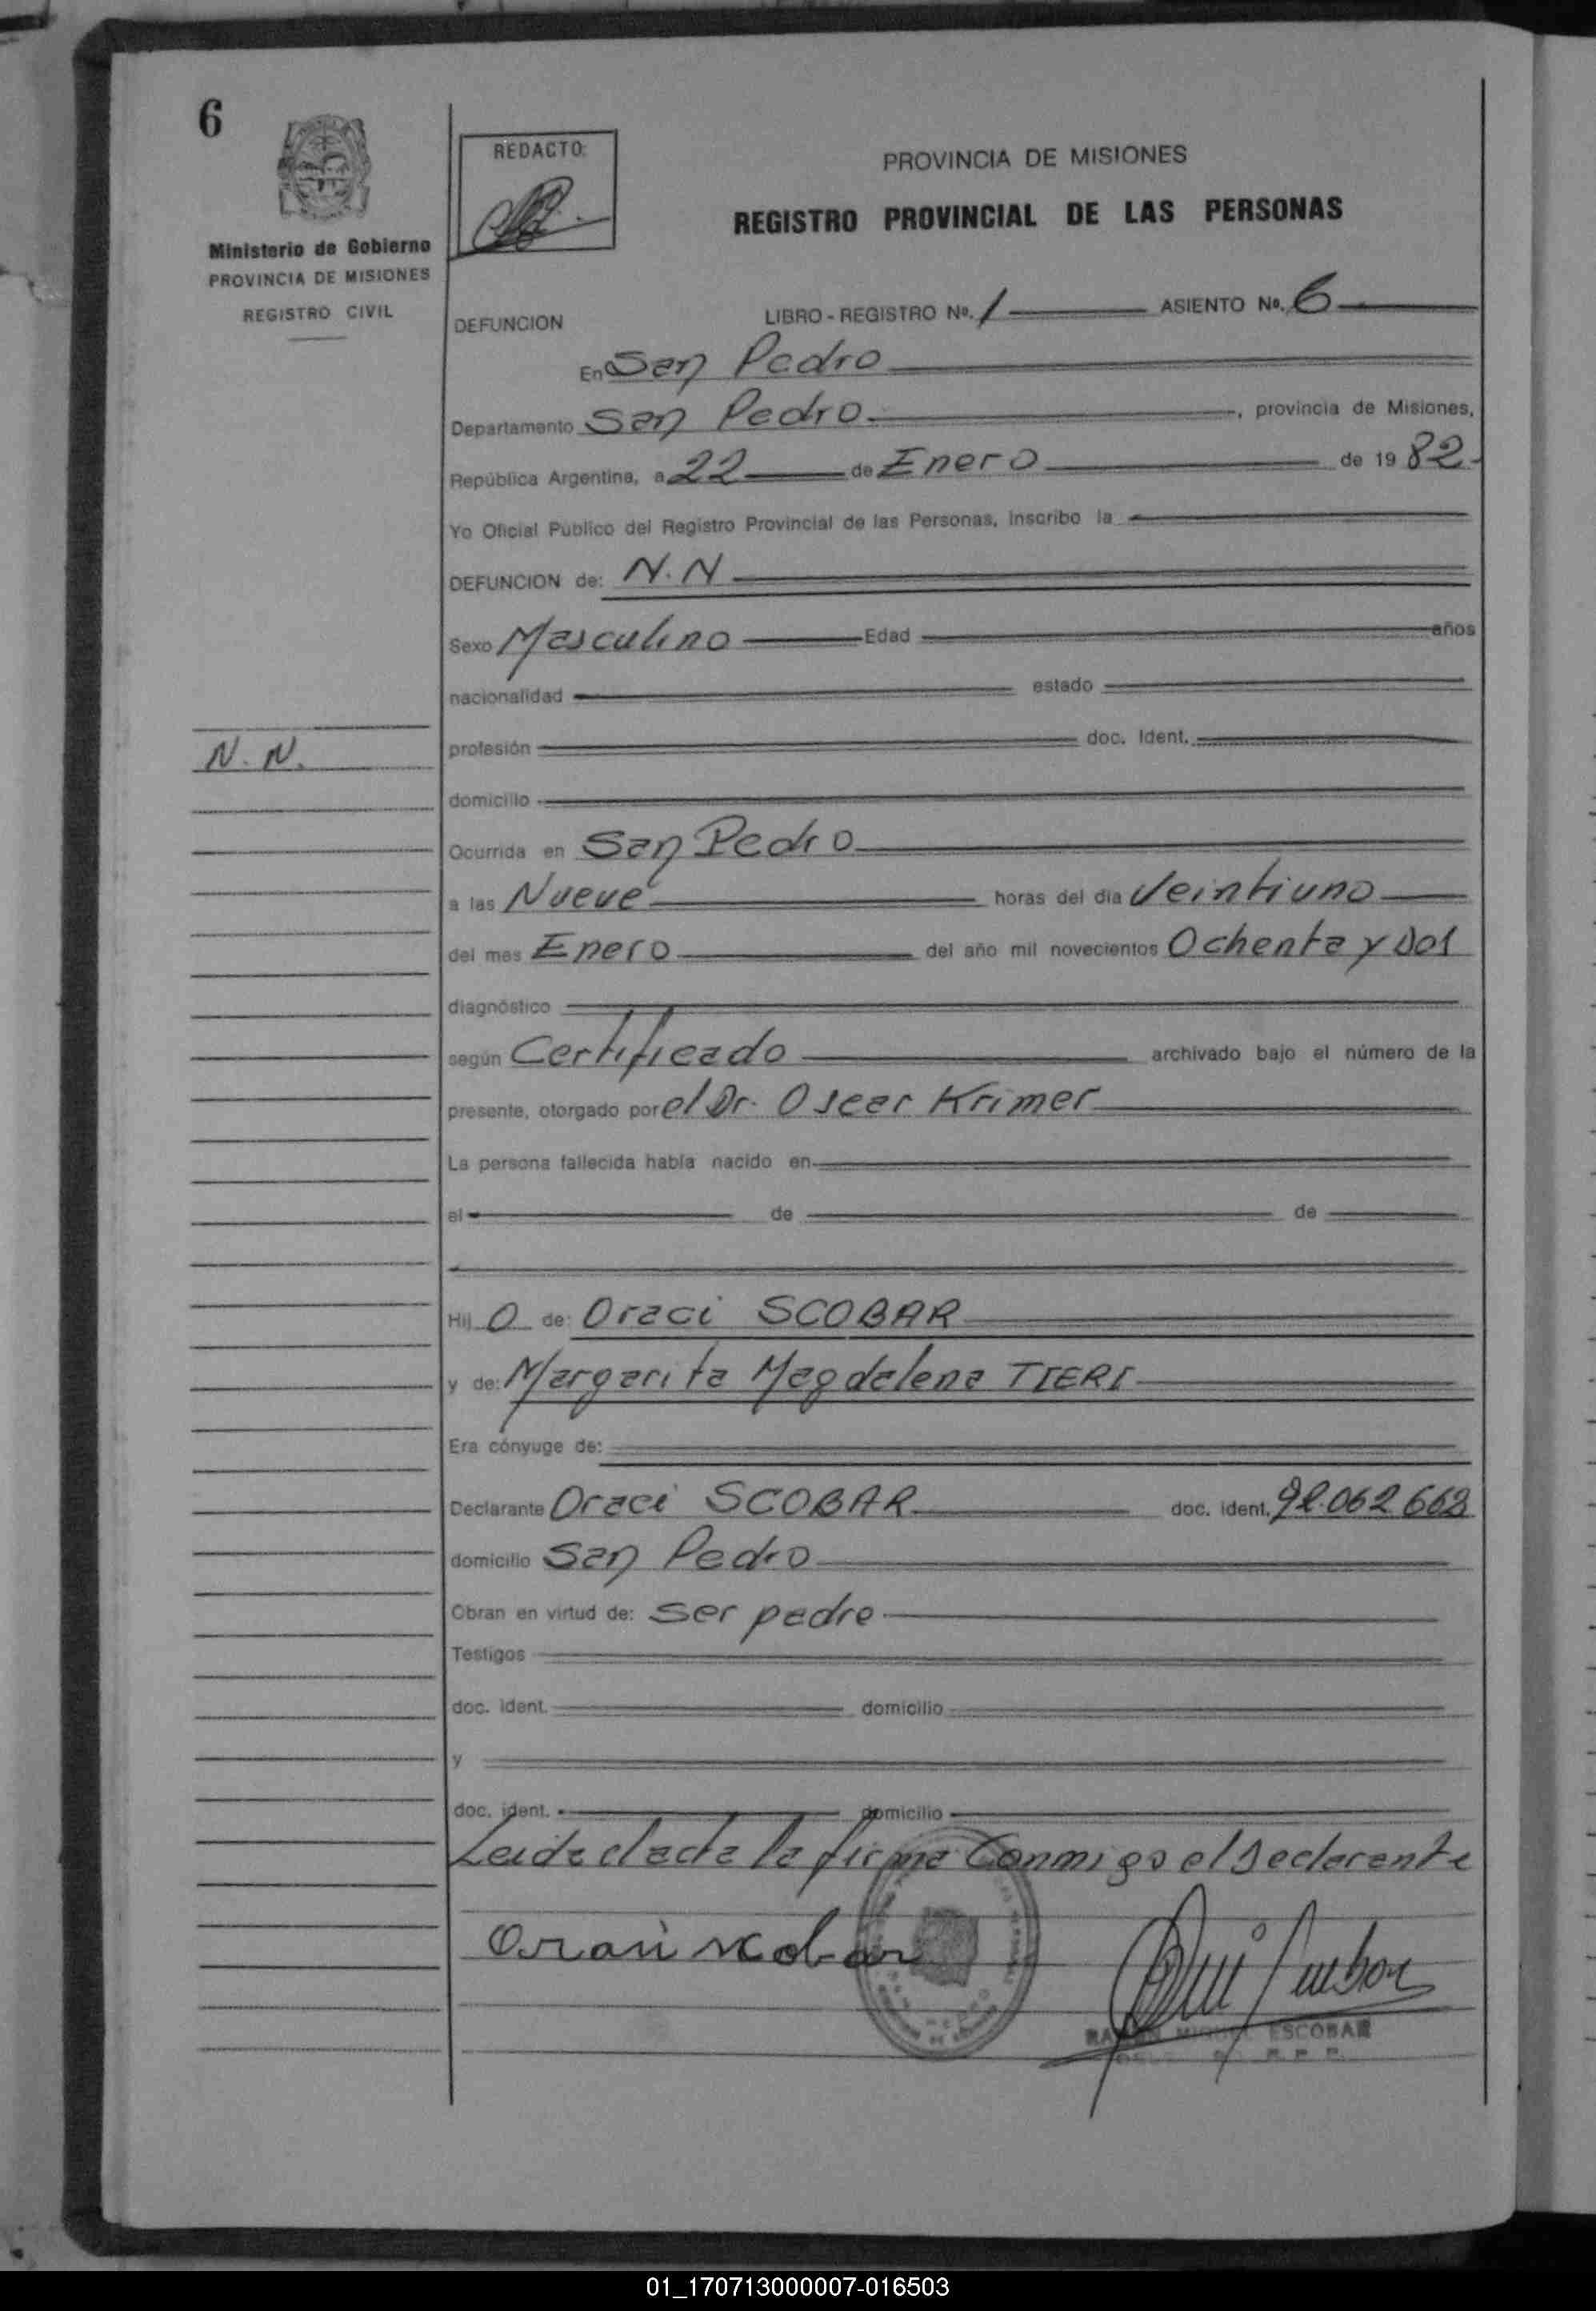 6
REDACTO:
PROVINCIA DE MISIONES
REGISTRO PROVINCIAL DE LAS PERSONAS
Ministerio de Gobierno
PROVINCIA DE MISIONES
REGISTRO CIVIL
DEFUNCION LIBRO - REGISTRO No. 1 ASIENTO No. 6
En San Pedro
Departamento San Pedro , provincia de Misiones,
República Argentina, a 22 de Enero de 19 82
Yo Oficial Público del Registro Provincial de las Personas, inscribo la
DEFUNCION de: N.N
Sexo Masculino Edad años
nacionalidad estado
N. N.
profesión doc. Ident.
domicilio
Ocurrida en San Pedro
a las Nueve horas del día Veintiuno
del mes Enero del año mil novecientos Ochenta y Dos
diagnóstico
según Certificado archivado bajo el número de la
presente, otorgado por el Dr. Oscar Krimer
La persona fallecida había nacido en
el de de
Hij o de: Oraci SCOBAR
y de: Margarita Magdalena TIERI
Era cónyuge de:
Declarante Oraci SCOBAR doc. ident. 92.062.663
domicilio San Pedro
Obran en virtud de: Ser padre
Testigos
doc. ident. domicilio
y
doc. ident. domicilio
Leida el acta la firma Conmigo el Declarante
Oraci scobar
MIGUEL ESCOBAR
01_170713000007-016503